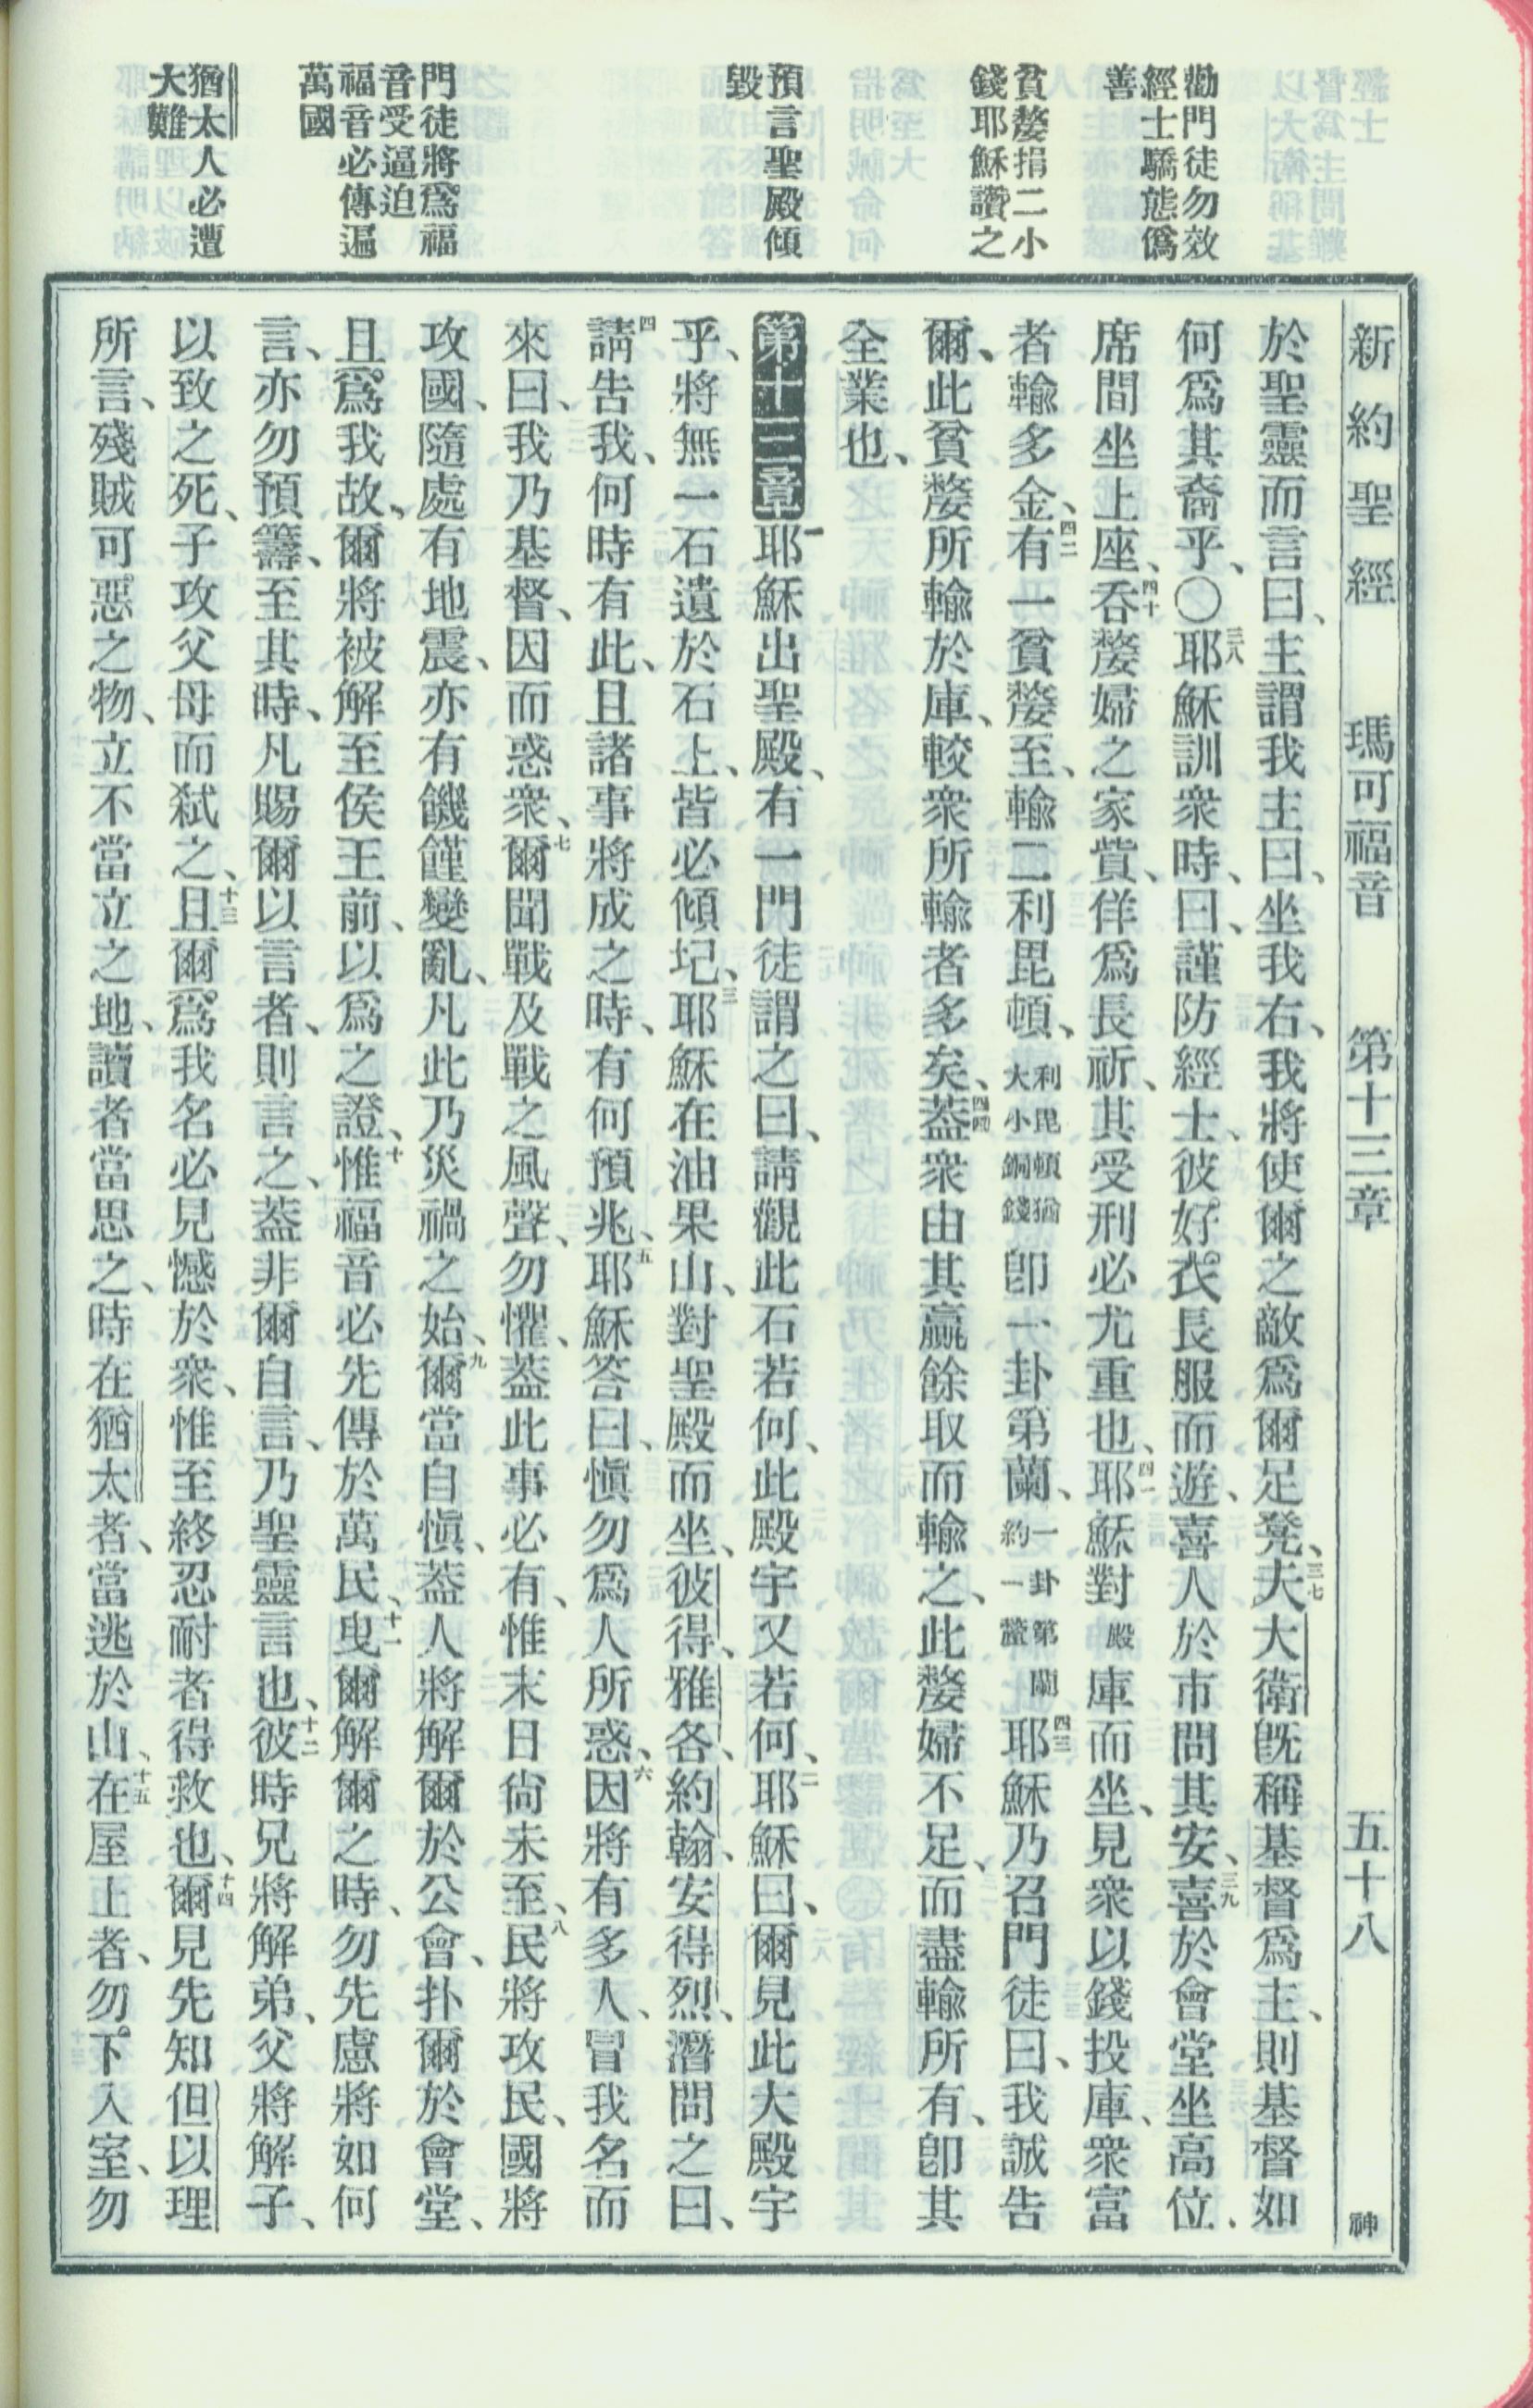 新約聖經 瑪可福音 第十三章 五十八 神
勸門徒勿效
經士驕態僞
善
貧嫠捐二小
錢耶穌讚之
預言聖殿傾
毀
門徒將爲福
音受逼迫
福音必傳遍
萬國
猶太人必遭
大難
於聖靈而言曰、主謂我主曰、坐我右、我將使爾之敵爲爾足凳、三七夫大衛旣稱基督爲主、則基督如
何爲其裔乎、〇三八耶穌訓衆時、曰、謹防經士、彼好衣長服而遊、喜人於市問其安、三九喜於會堂坐高位、
席間坐上座、四十呑嫠婦之家貲、佯爲長祈、其受刑必尤重也、四一耶穌對殿庫而坐、見衆以錢投庫、衆富
者輸多金、四二有一貧嫠至、輸二利毘頓、利毘頓猶大小銅錢卽一卦第蘭、一卦第蘭約一釐四三耶穌乃召門徒曰、我誠告
爾、此貧嫠所輸於庫、較衆所輸者多矣、四四蓋衆由其贏餘取而輸之、此嫠婦不足、而盡輸所有、卽其
全業也、
第十三章一耶穌出聖殿、有一門徒謂之曰、請觀此石若何、此殿宇又若何、二耶穌曰、爾見此大殿宇
乎、將無一石遺於石上、皆必傾圮、三耶穌在油果山、對聖殿而坐、彼得、雅各、約翰、安得烈、潛問之曰、
四請告我、何時有此、且諸事將成之時、有何預兆、五耶穌答曰、愼勿爲人所惑、六因將有多人、冒我名而
來曰、我乃基督、因而惑衆、七爾聞戰及戰之風聲、勿懼、蓋此事必有、惟末日尙未至、八民將攻民、國將
攻國、隨處有地震、亦有饑饉變亂、凡此乃災禍之始、九爾當自愼、蓋人將解爾於公會、扑爾於會堂、
且爲我故、爾將被解至侯王前、以爲之證、十惟福音必先傳於萬民、十一曳爾解爾之時、勿先慮將如何
言、亦勿預籌、至其時、凡賜爾以言者、則言之、蓋非爾自言、乃聖靈言也、十二彼時兄將解弟、父將解子、
以致之死、子攻父母而弒之、十三且爾爲我名必見憾於衆、惟至終忍耐者得救也、十四爾見先知但以理
所言、殘賊可惡之物、立不當立之地、讀者當思之、時在猶太者、當逃於山、十五在屋上者、勿下入室、勿